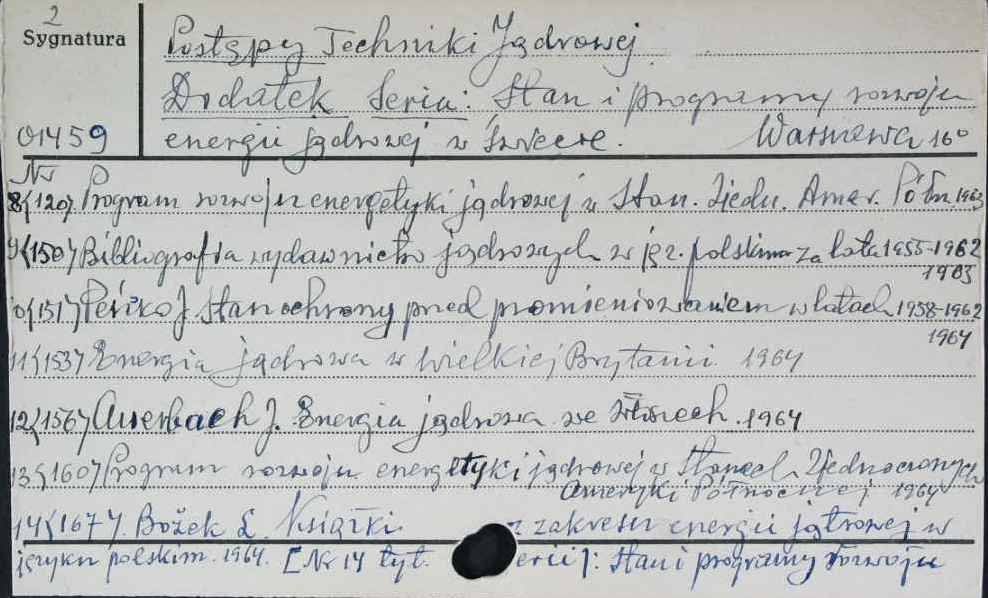 2
Sygnatura
Postępy Techniki Jądrowej
Dodatek Seria: Stan i programy rozwoju
01459 energii jądrowej w świecie. Warszawa 16°
Nr
8/120/. Program rozwoju energetyki jądrowej w Stan. Zjedn. Amer. Półn. 1963
9/150/ Bibliografia wydawnictw jądrowych w jęz. polskim za lata 1955-1962
1963
10/151/ Peńko J. Stan ochrony przed promieniowaniem w latach 1958-1962
1964
11/153/ Energia jądrowa w Wielkiej Brytanii 1964
12/156/ Auerbach J. Energia jądrowa we Włoszech. 1964
13/160/ Program rozwoju energetyki jądrowej w Stanach Zjednoczonych
Ameryki Północnej 1964
14/167/. Bożek L. Książki z zakresu energii jądrowej w
języku polskim. 1964. [Nr 14 tyt. erii]: Stan i programy rozwoju